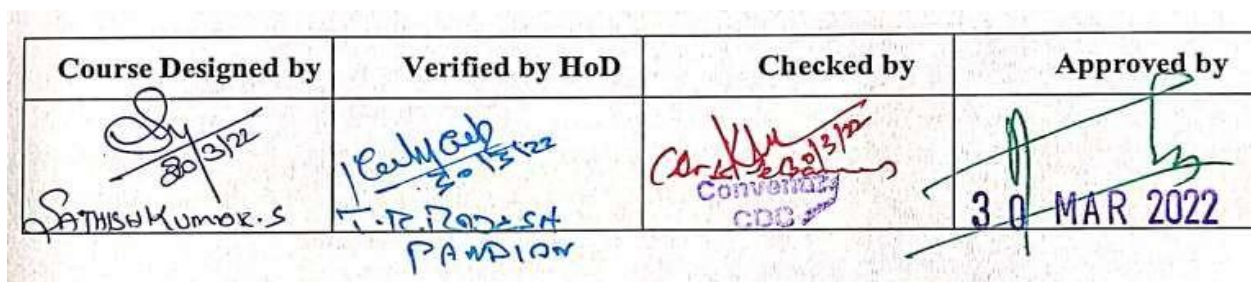 Course Designed by
Verified by HoD
Checked by
Approved by
30/3/22
SATHISH KUMAR.S
30/3/22
T.R.RAJESH
PANDIAN
30/3/22
Convenor
CDC
30 MAR 2022